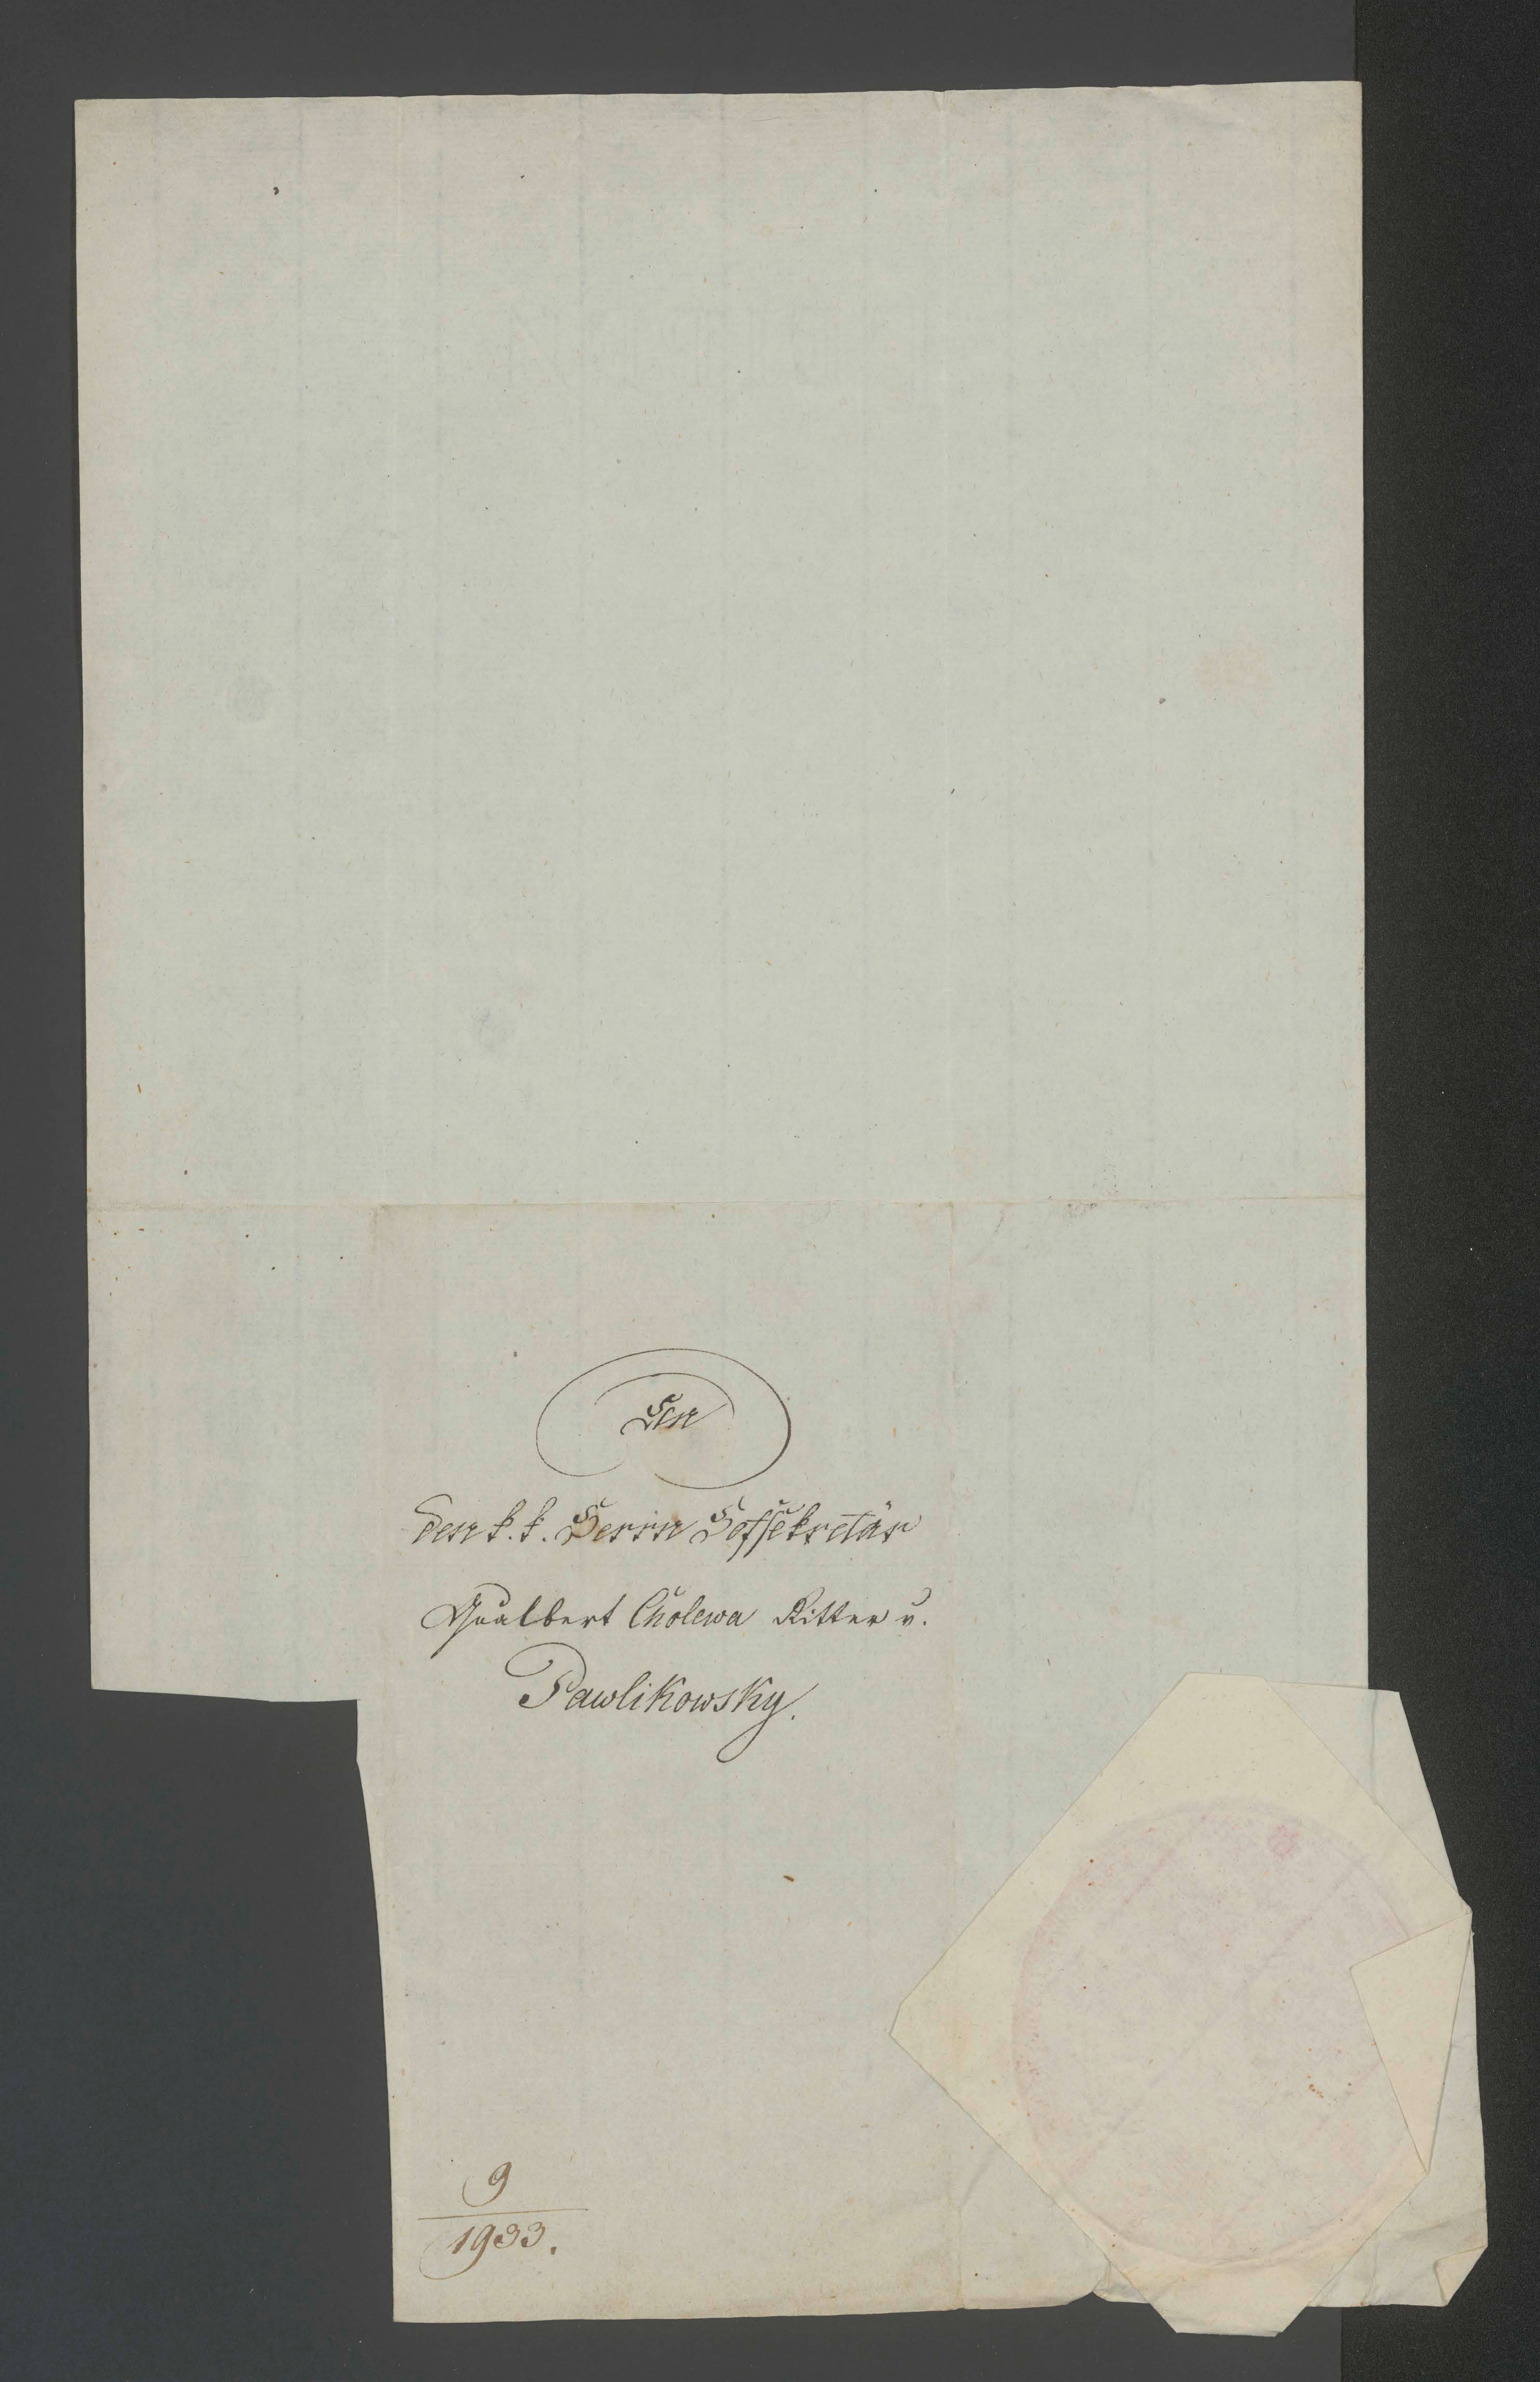 Den
k. k. Herrn Hofsekretär
Gualbert Cholewa Ritter v.
Pawlikowsky.
9
1933.